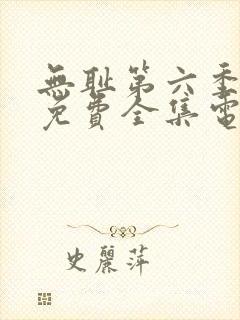 無耻第六季
免費全集電
史麗萍